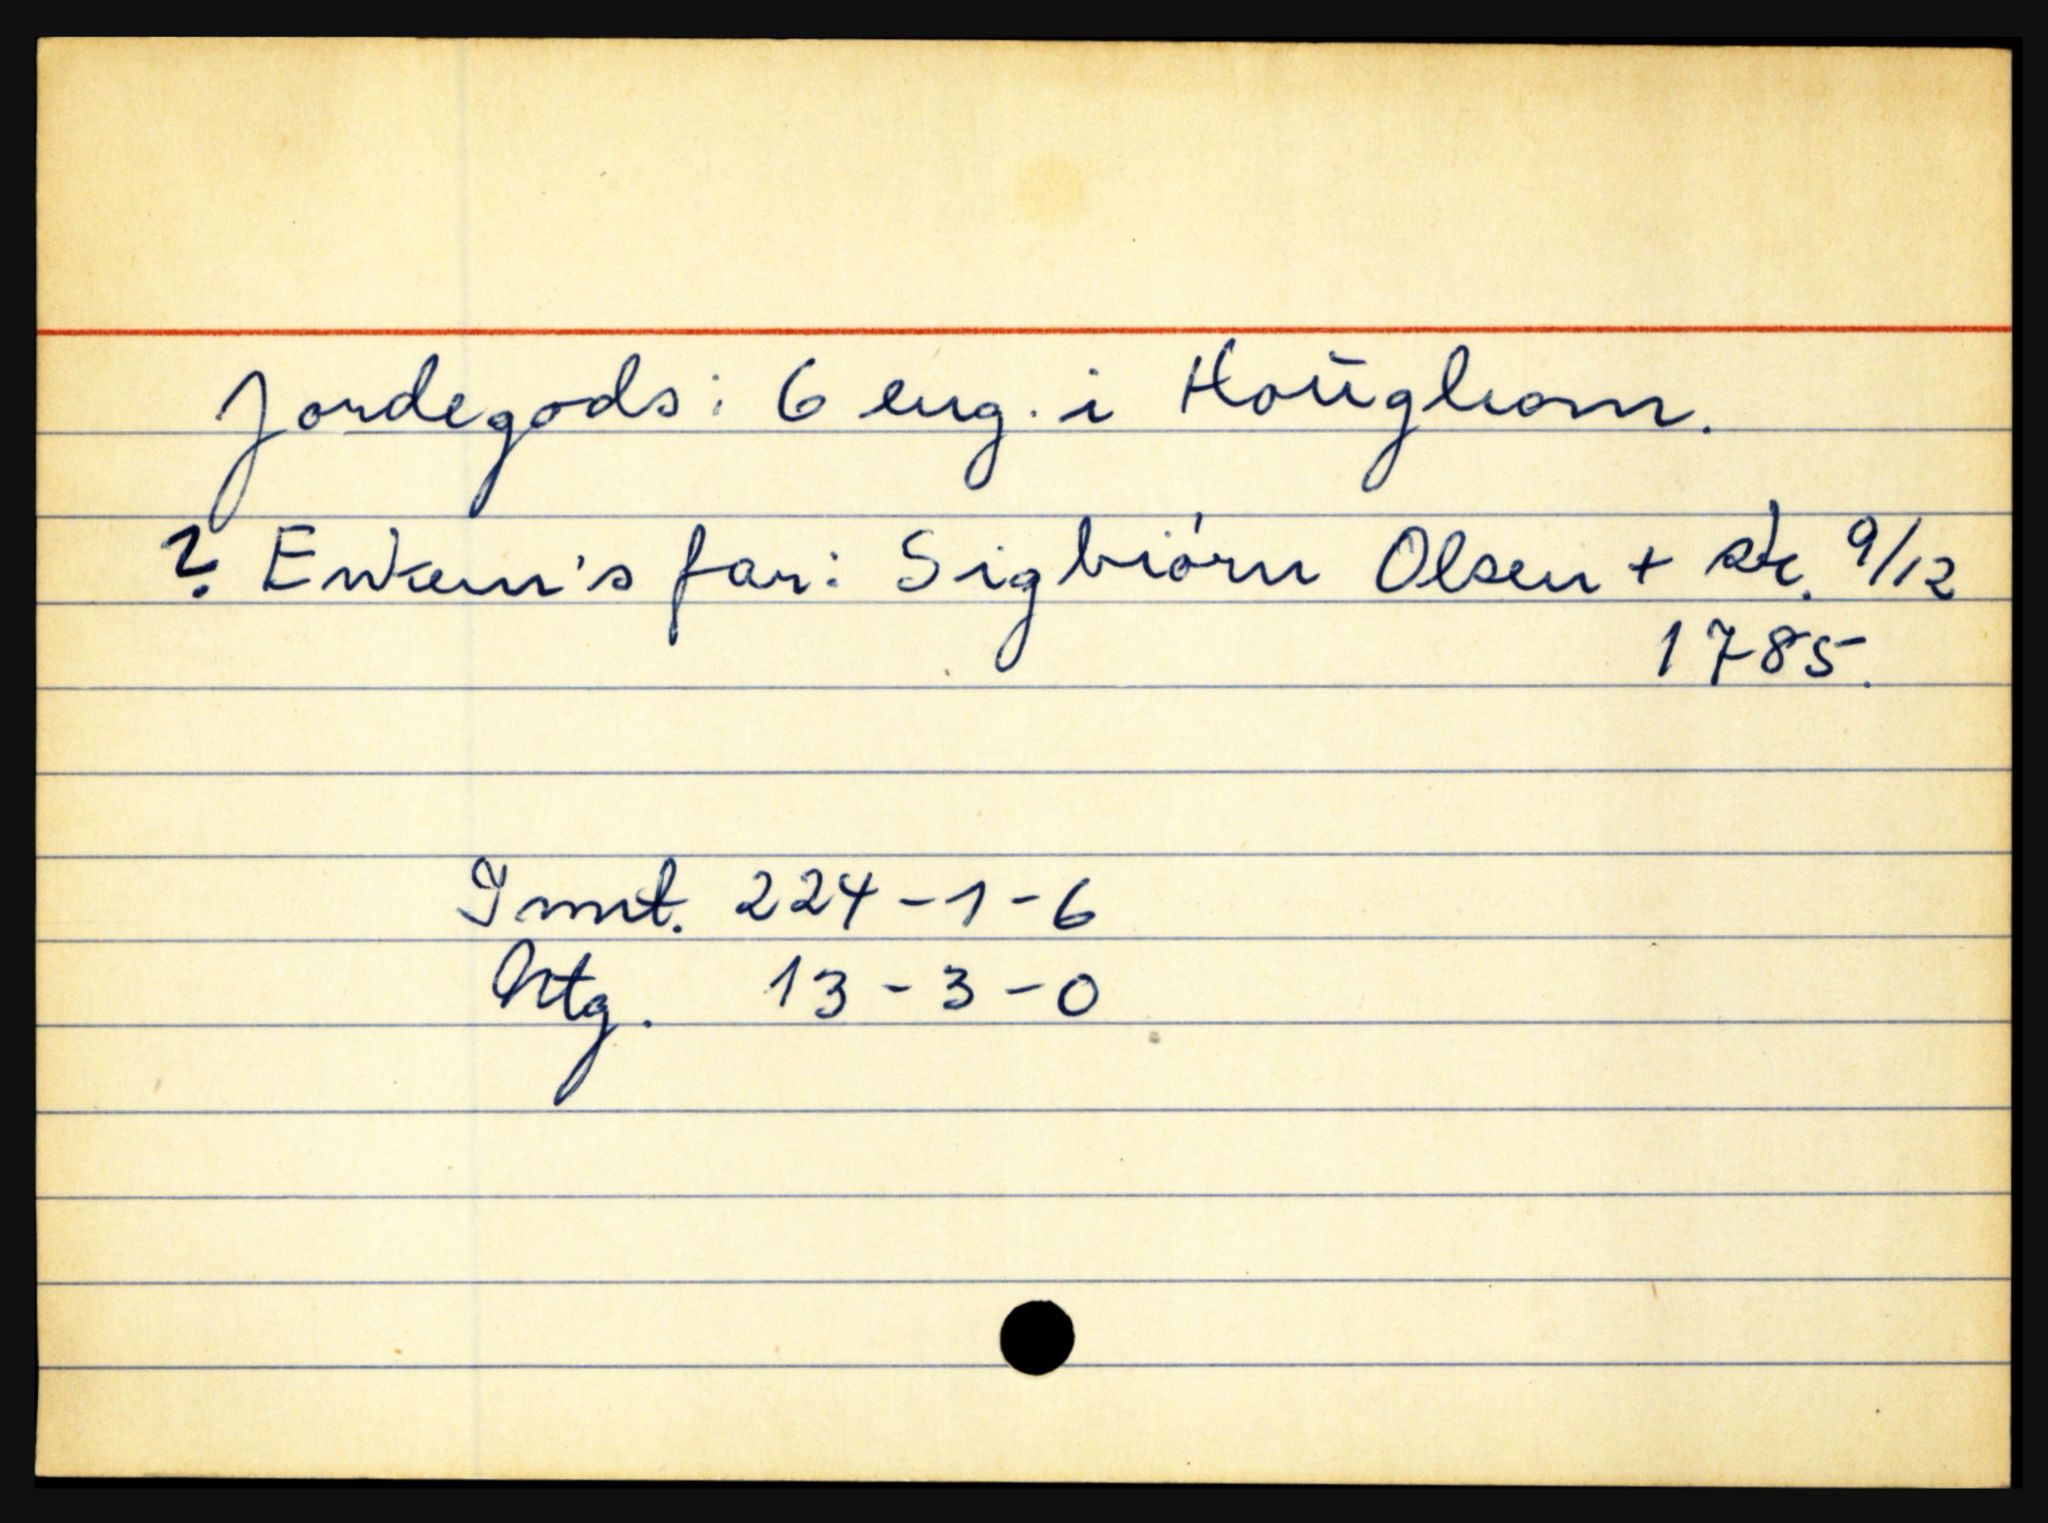 Jordegods: 6 eng. i Houghom.
? Enken's far: Sigbiórn Olsen + sk. 9/12
1785.
Innt. 224-1-6
Utg. 13-3-0